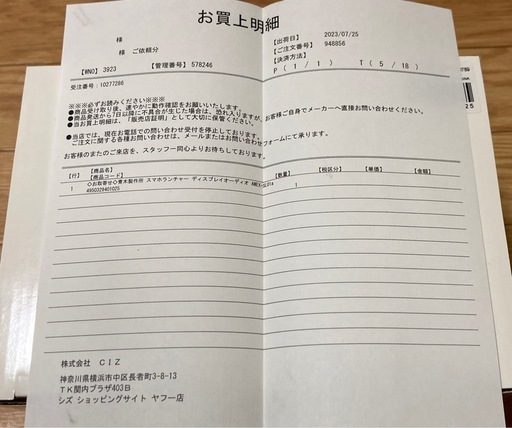 お買上明細
様
様 ご依頼分
【出荷日】 2023/07/25
【ご注文番号】 948856
【決済方法】
P ( 1 / 1 ) T ( 5 / 18 )
【WNO】 3923 【管理番号】 578246
受注番号：10277286
※※※必ずお読みください※※※
●商品受け取り後、速やかに動作確認をお願いいたします。
●商品発送から7日以降に不具合が生じた場合は、恐れ入りますが、お客様ご自身でメーカーへ直接お問い合わせください。
●当お買上明細は、「販売店証明」として大切に保管ください。
●当店では、現在お電話での問い合わせ受付を停止しております。
ご注文に関する各種お問い合わせは、メールまたはお問い合わせフォームにて承ります。
お客様のまたのご来店を、スタッフ一同心よりお待ちしております。
【行】 【商品名】 【数量】 【税区分】 【単価】 【金額】
【商品コード】
1 ◇お取寄せ◇青木製作所 スマホランチャー ディスプレイオーディオ 1
4950329401025
株式会社 CIZ
神奈川県横浜市中区長者町3-8-13
TK関内プラザ403B
シズ ショッピングサイト ヤフー店